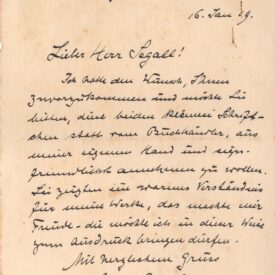 16. Jan 29.
Lieber Herr Segall!
Ich hatte den Wunsch, Ihnen
zuvorzukommen und möchte Sie
bitten, diese beiden kleinen Schrift-
chen statt vom Buchhändler, aus
meiner eigenen Hand und
freundlichst annehmen zu wollen.
Sie zeigten ein warmes Verständnis
für meine Werke, das macht mir
Freude - die möchte ich in dieser Weise
zum Ausdruck bringen dürfen.
Mit herzlichem Gruss